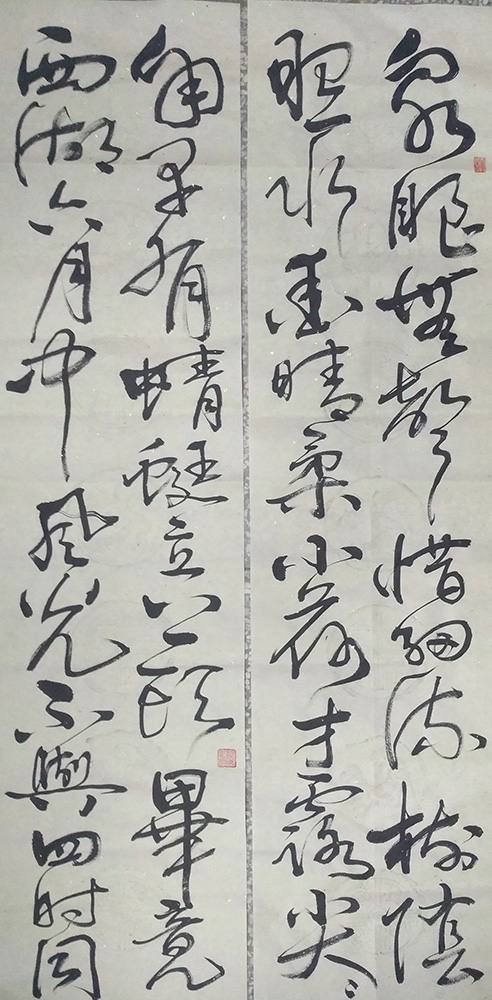 泉眼無聲惜細流樹陰
照水愛晴柔小荷才露尖々
角早有蜻蜓立上頭 畢竟
西湖六月中風光不與四时同